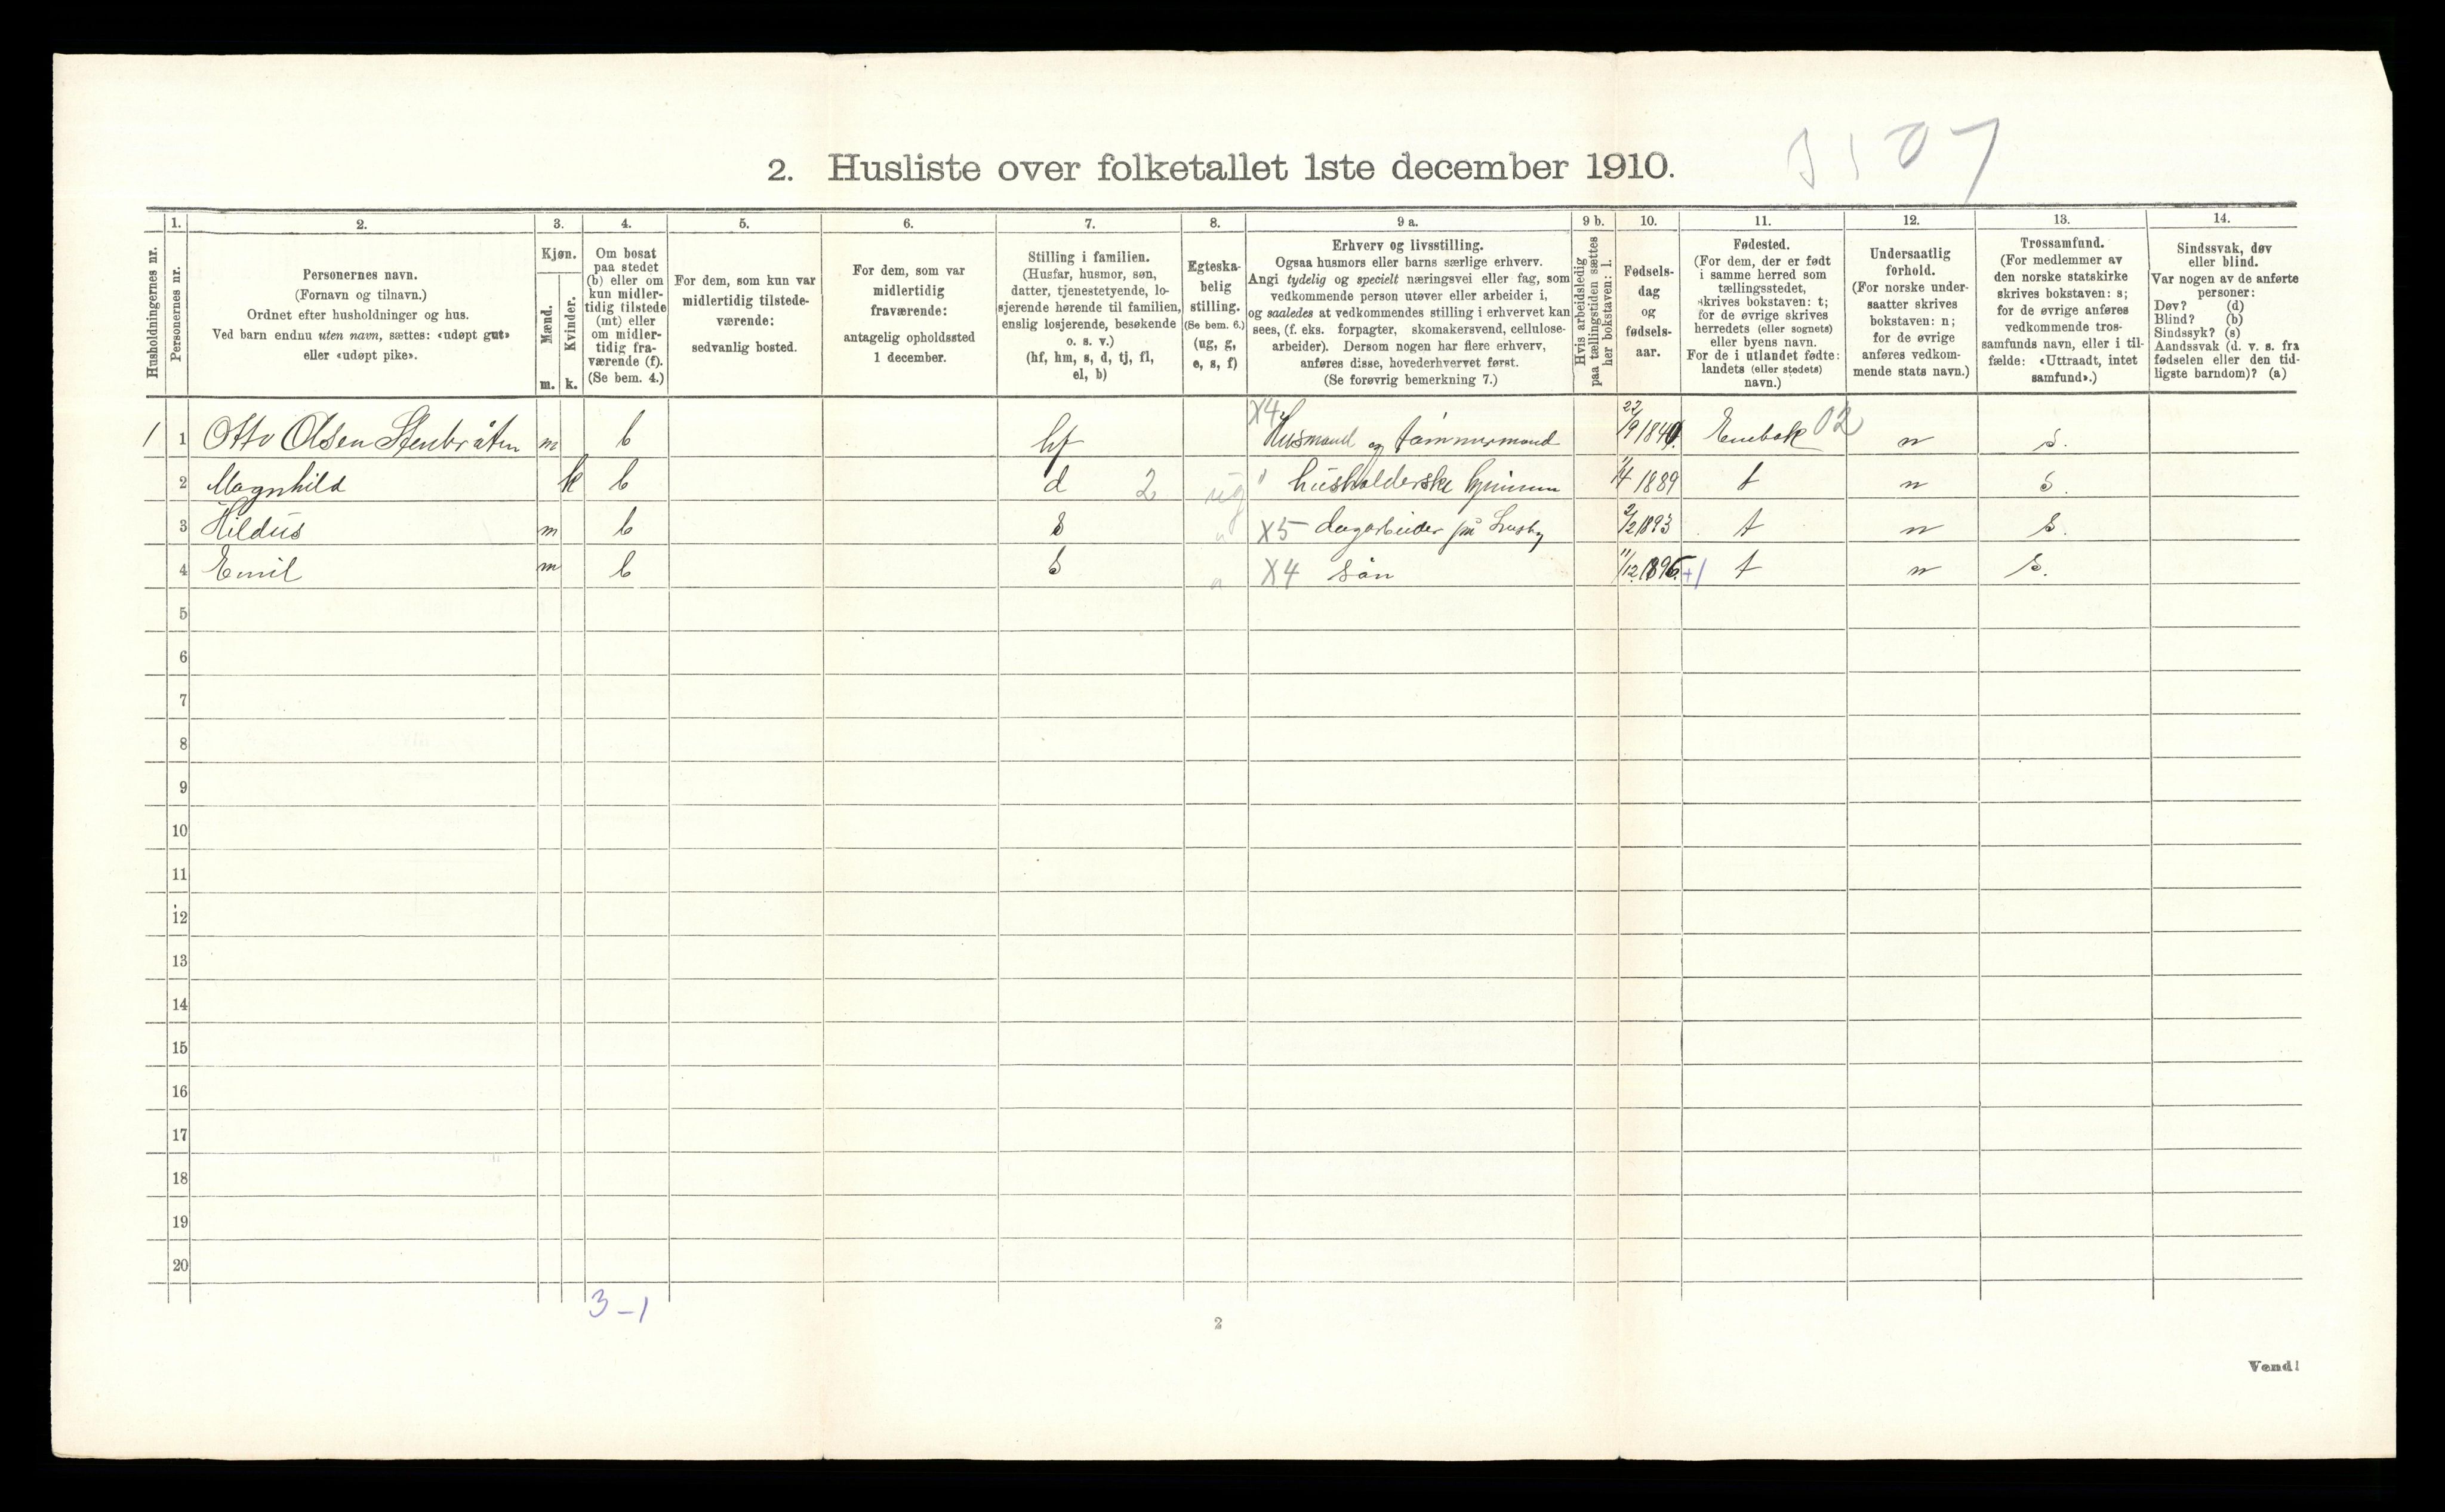 2. Husliste over folketallet 1ste december 1910.
1. 2. 3. 4. 5. 6. 7. 8. 9 a. 9 b. 10. 11. 12. 13. 14.
Husholdningernes nr.
Personernes nr.
Personernes navn.
(Fornavn og tilnavn.)
Ordnet efter husholdninger og hus.
Ved barn endnu uten navn, sættes: «udøpt gut»
eller «udøpt pike».
Kjøn.
Mænd.
Kvinder.
m. k.
Om bosat
paa stedet
(b) eller om
kun midler-
tidig tilstede
(mt) eller
om midler-
tidig fra-
værende (f).
(Se bem. 4.)
For dem, som kun var
midlertidig tilstede-
værende:
sedvanlig bosted.
For dem, som var
midlertidig
fraværende:
antagelig opholdssted
1 december.
Stilling i familien.
(Husfar, husmor, søn,
datter, tjenestetyende, lo-
sjerende hørende til familien,
enslig losjerende, besøkende
o. s. v.)
(hf, hm, s, d, tj, fl,
el, b)
Egteska-
belig
stilling.
(Se bem. 6.)
(ug, g,
e, s, f)
Erhverv og livsstilling.
Ogsaa husmors eller barns særlige erhverv.
Angi tydelig og specielt næringsvei eller fag, som
vedkommende person utøver eller arbeider i,
og saaledes at vedkommendes stilling i erhvervet kan
sees, (f. eks. forpagter, skomakersvend, cellulose-
arbeider). Dersom nogen har flere erhverv,
anføres disse, hovederhvervet først.
(Se forøvrig bemerkning 7.)
Hvis arbeidsledig
paa tællingstiden sættes
her bokstaven: l.
Fødsels-
dag
og
fødsels-
aar.
Fødested.
(For dem, der er født
i samme herred som
tællingsstedet,
skrives bokstaven: t;
for de øvrige skrives
herredets (eller sognets)
eller byens navn.
For de i utlandet fødte:
landets (eller stedets)
navn.)
Undersaatlig
forhold.
(For norske under-
saatter skrives
bokstaven: n;
for de øvrige
anføres vedkom-
mende stats navn.)
Trossamfund.
(For medlemmer av
den norske statskirke
skrives bokstaven: s;
for de øvrige anføres
vedkommende tros-
samfunds navn, eller i til-
fælde: «Uttraadt, intet
samfund».)
Sindssvak, døv
eller blind.
Var nogen av de anførte
personer:
Døv? (d)
Blind? (b)
Sindssyk? (s)
Aandssvak (d. v. s. fra
fødselen eller den tid-
ligste barndom)? (a)
1 1 Otto Olsen Stenbråten m b hf X4 Husmand og tømmermand 22/9 1840. Enebak 02 n s.
2 Magnhild k b d 2 ug " husholderske 4 1889 t n s.
3 Hildus m b s " X5 dagarbeider på 2/2 1893 t n s.
4 Emil m b s " X4 søn 11/12 1896. +1 t n s.
5
6
7
8
9
10
11
12
13
14
15
16
17
18
19
20
3 - 1
2
Vend!